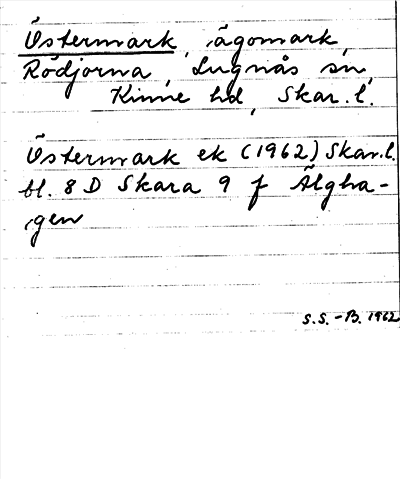 Östermark, ägomark,
Rödjorna, Lugnås sn,
Kinne hd, Skar. l.
Östermark ek (1962) Skar. l.
bl. 8 D Skara 9 f Älgha-
gen
S.S.-B. 1962